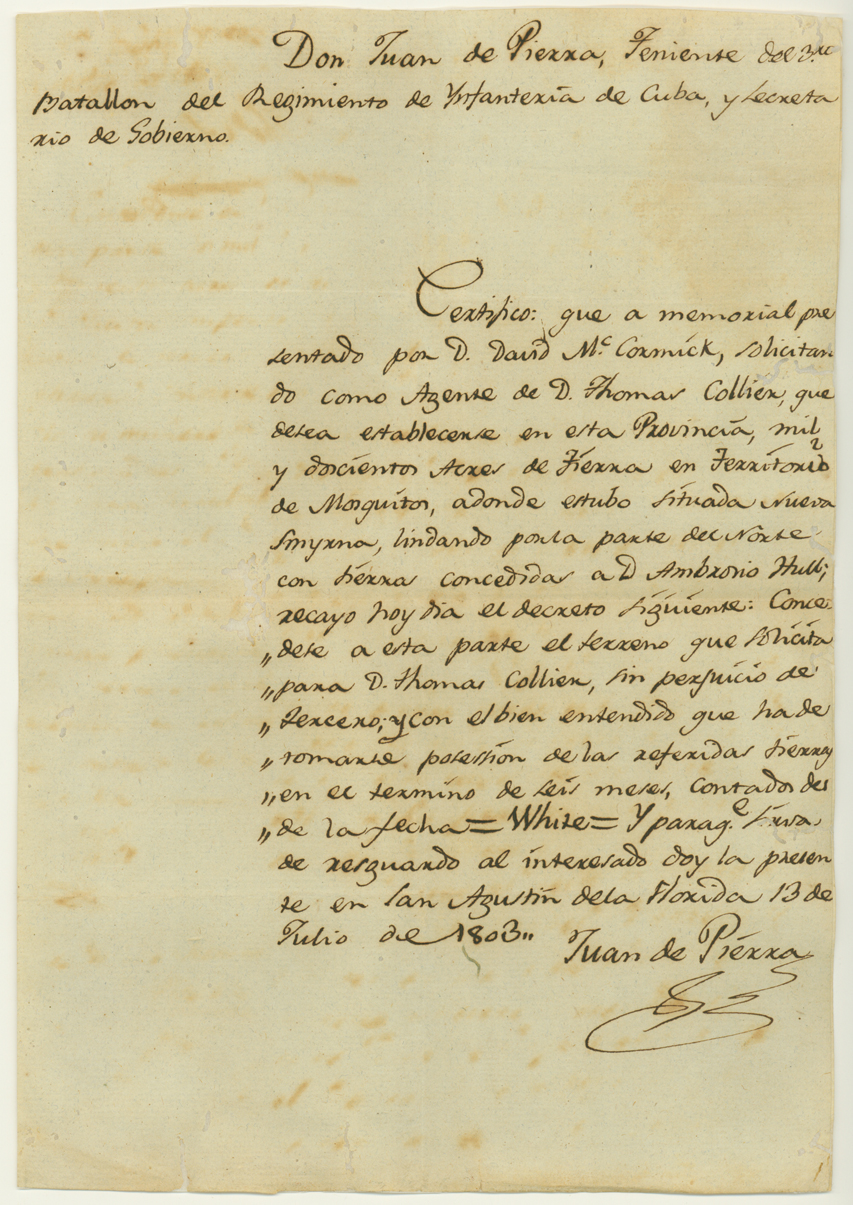 Don Juan de Pierra, Teniente del 3.ro
Batallon del Regimiento de Ynfanteria de Cuba, y Secreta
rio de Gobierno.
Certifico: que a memorial pre
sentado por D. David Mc. Cormick, solicitan
do como Agente de D. Thomas Collier, que
desea establecerse en esta Provincia, mil
y doscientos Acres de tierra en Territorio
de Mosquitos, adonde estubo situada Nueva
Smyrna, lindando por la parte del Norte
con tierra concedidas a D Ambrosio Hull;
recayo hoy dia el decreto siguiente: Conce-
„ dese a esta parte el terreno que solicita
„ para D. Thomas Collier, sin perjuicio de
„ tercero; y con el bien entendido que ha de
„ tomarse posession de las referidas tierras
„ en el termino de seis meses, contados des
„ de la fecha = White = Y para q.e sirva
de resguardo al interesado doy la presen
te en San Agustin dela Florida 13 de
Julio de 1803„
Juan de Pierra